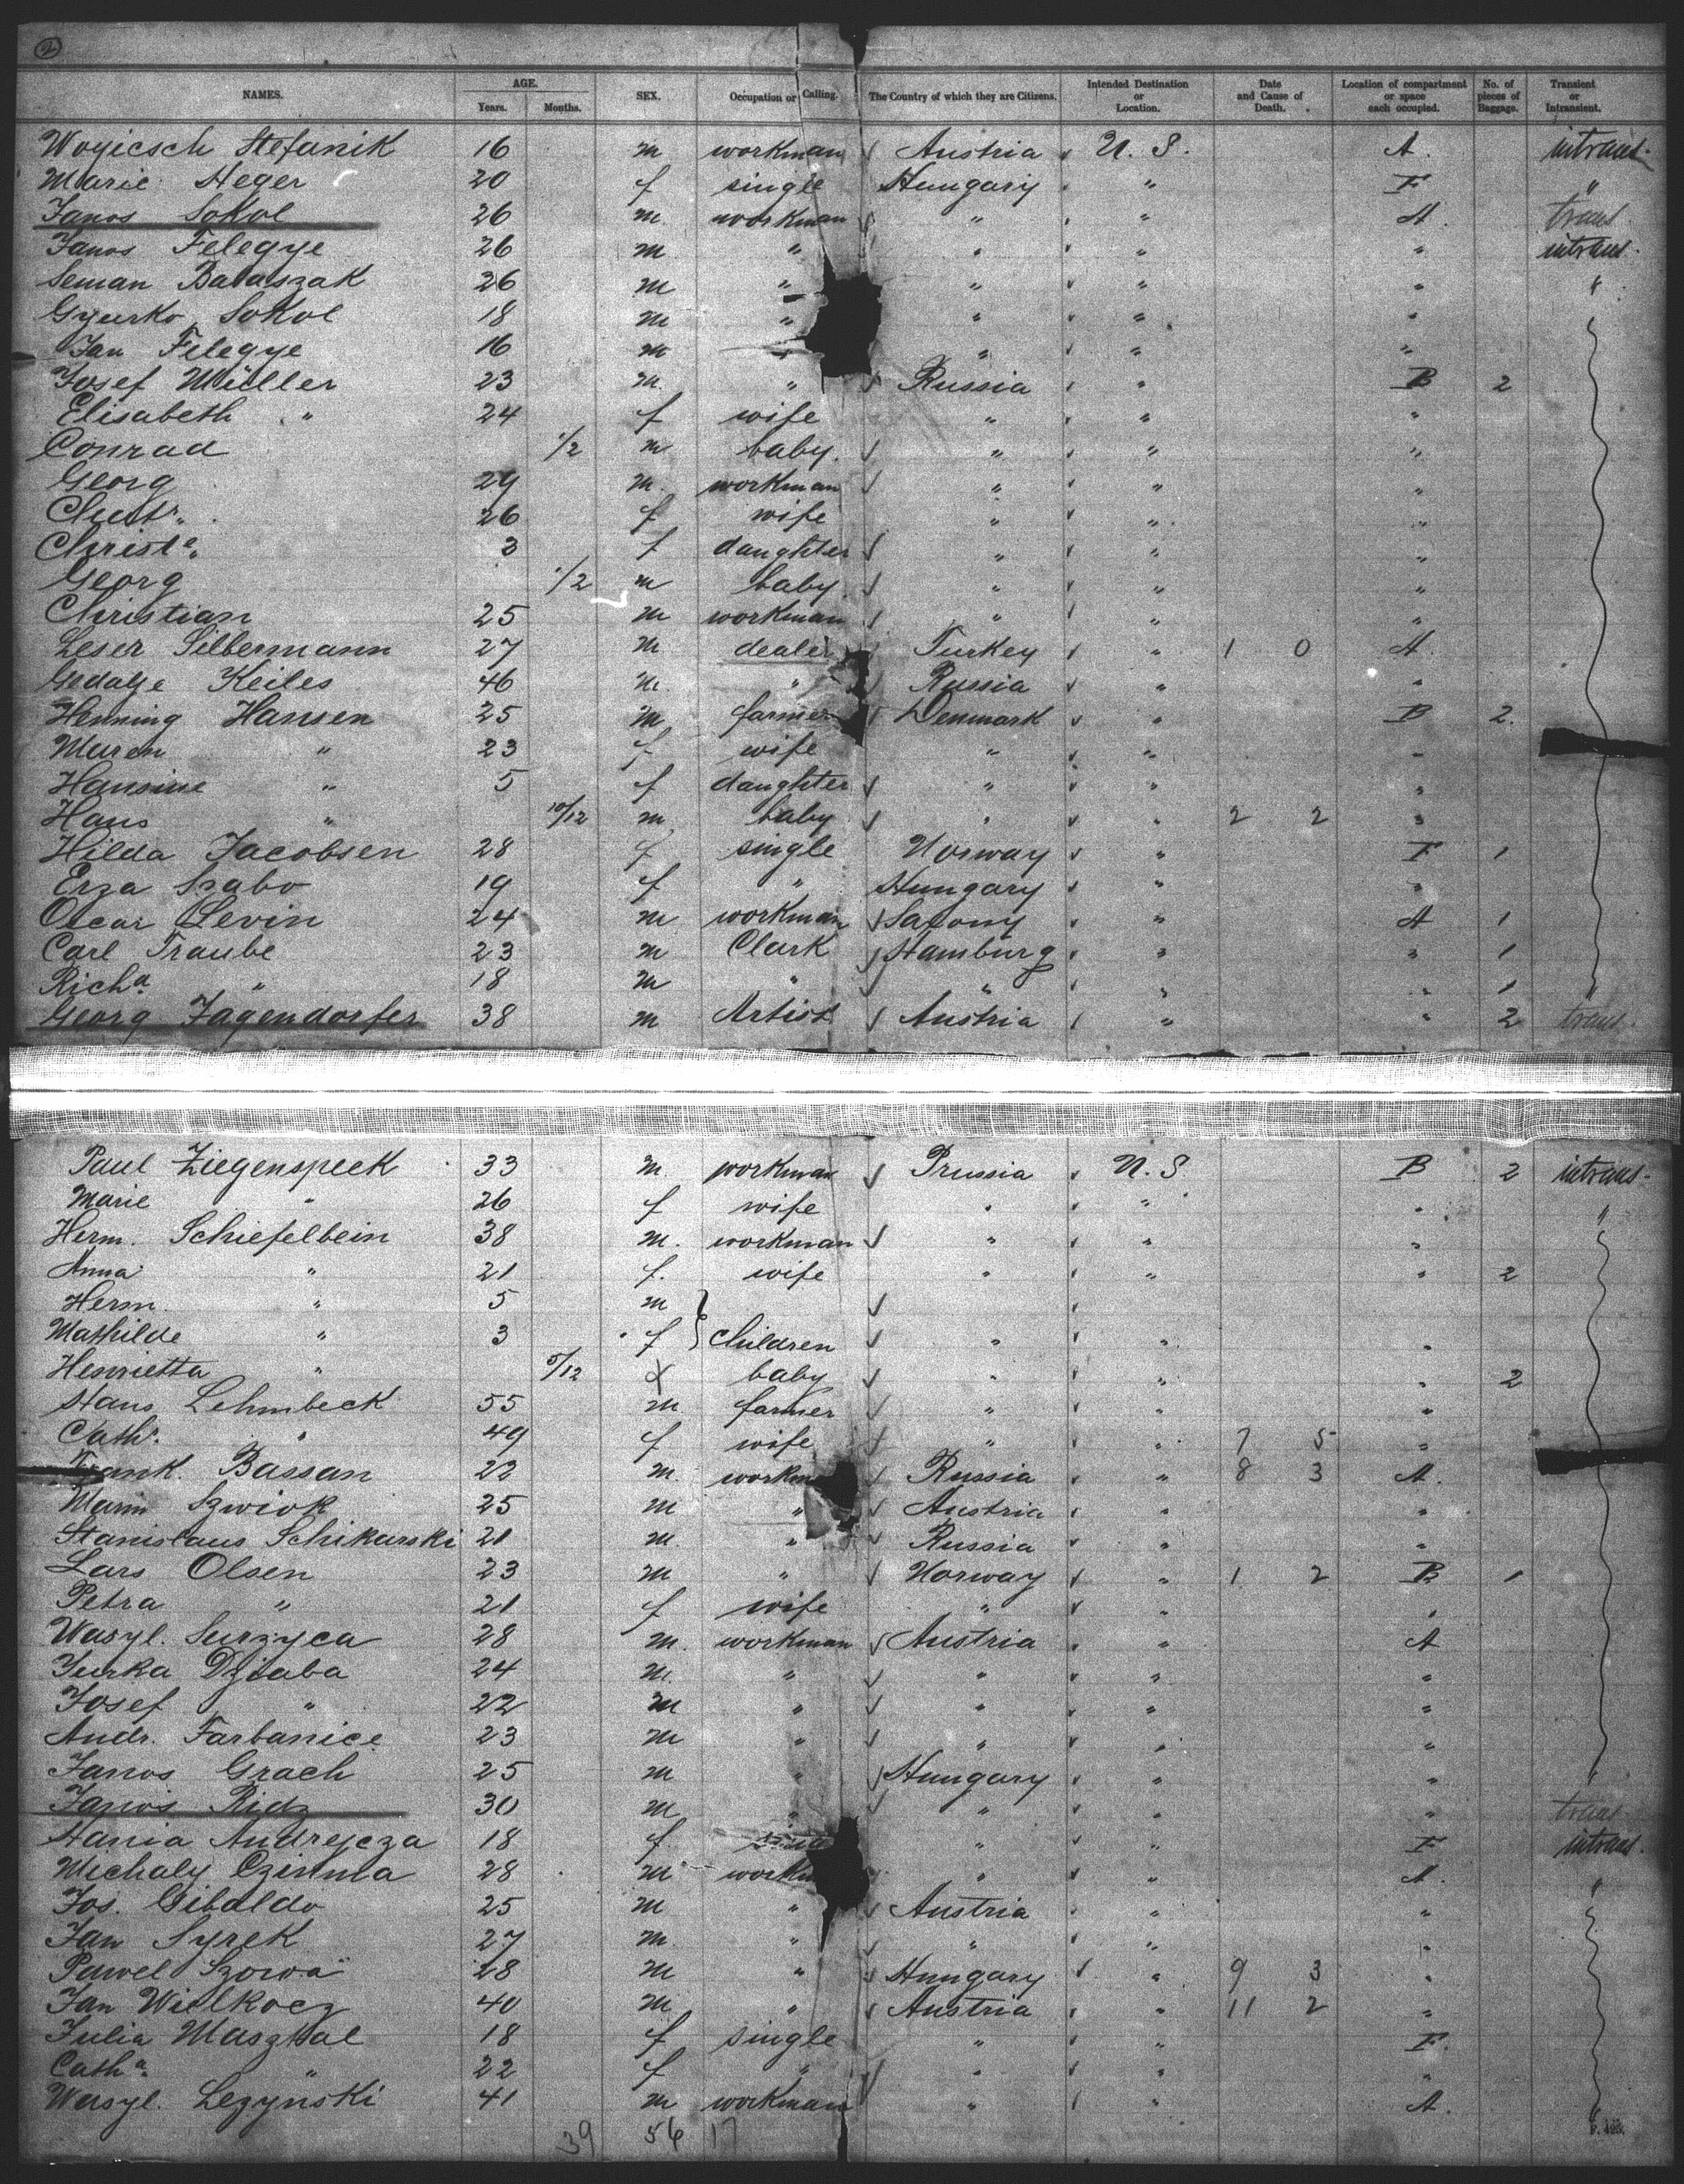 2
NAMES. AGE. Years. Months. SEX. Occupation or Calling. The Country of which they are Citizens. Intended Destination or Location. Date and Cause of Death. Location of compartment or space each occupied. No. of pieces of Baggage. Transient or Intransient.
Woyicsch Stefanik 16 m workman Austria U. S. A. intrans.
Marie Heger 20 f single Hungary " F "
Janos Sokol 26 m. workman " " A. trans.
Janos Felegye 26 m " " " " intrans.
Seman Balaszak 26 m " " " " "
Gyurko Sokol 18 m " " " "
Jan Felegye 16 m " " " "
Josef Müller 23 m. " Russia " B 2
Elisabeth " 24 f wife " " "
Conrad 1/2 m baby. " " "
Georg 29 m. workman " " "
26 f wife " " "
Christa " 3 f daughter " " "
Georg 1/2 m baby. " " "
Christian 25 m workman " " "
Leser Silbermann 27 m dealer Turkey " 1 0 A.
Gedalye Keiles 46 m. " Russia " "
Henning Hansen 25 m farmer Denmark " B 2.
Maren " 23 f wife " " "
Hansine " 5 f daughter " " "
Hans " 10/12 m baby " " 2 2 "
Hilda Jacobsen 28 f single Norway " F 1
Erza Szabo 19 f " Hungary " "
Oscar Levin 24 m workman Saxony " A 1
Carl Traube 23 m Clark Hamburg " " 1
Richa. " 18 m " " " " 1
Georg Jagendorfer 38 m Artist Austria " " 2 trans.
Paul Ziegenspeck 33 m. workman Prussia U. S. B 2 intrans.
Marie " 26 f wife " " " "
Herm. Schiefelbein 38 m. workman " " "
Anna " 21 f. wife " " " 2
Herm. " 5 m
Mathilde " 3 f children " " "
Henrietta " 5/12 f baby " " " 2
Hans Lehmbeck 55 m farmer " " "
Cath. " 49 f wife " " 7 5 "
Frank. Bassan 22 m workm Russia " 8 3 A.
Szwiok 25 m " Austria " "
Stanislaus Schikurski 21 m. " Russia " "
Lars Olsen 23 m " Norway " 1 2 B 1
Petra " 21 f wife " " "
Wasyl. Surzyca 28 m. workman Austria " A
Jurka Dziaba 24 m. " " " "
Josef " 22 m " " " "
Andr. Farbanice 23 m " " " "
Janos Grach 25 m " Hungary " "
Janos Ridz 30 m " " " " trans.
Hania Andrejcza 18 f. " " F intrans.
Michaly Czimma 28 m workm " " A. "
Jos. Gibaldo 25 m " Austria " "
Jan Syrek 27 m. " " " "
Pawel Szowa 28 m " Hungary " 9 3 "
Jan Wielkocz 40 m " Austria " 11 2 "
Julia Masztal 18 f single " " F.
Catha. " 22 f " " " "
Wasyl. Lezynski 41 m workman " " A.
39 56 17